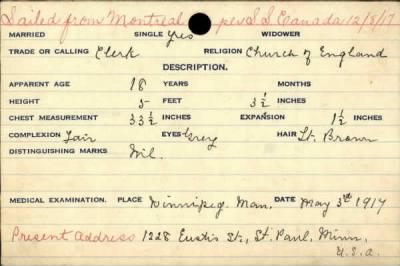 Sailed from Montreal per S.S. Canada 12/5/17
MARRIED SINGLE yes WIDOWER
TRADE OR CALLING Clerk RELIGION Church of England
DESCRIPTION.
APPARENT AGE 18 YEARS MONTHS
HEIGHT 5 FEET 3 1/2 INCHES
CHEST MEASUREMENT 33 1/2 INCHES EXPANSION 1 1/2 INCHES
COMPLEXION Fair EYES Grey HAIR Lt. Brown
DISTINGUISHING MARKS Nil.
MEDICAL EXAMINATION. PLACE Winnipeg. Man. DATE May 3rd 1917
Present Address 1228 Eustis St., St. Paul, Minn,
U.S.A.